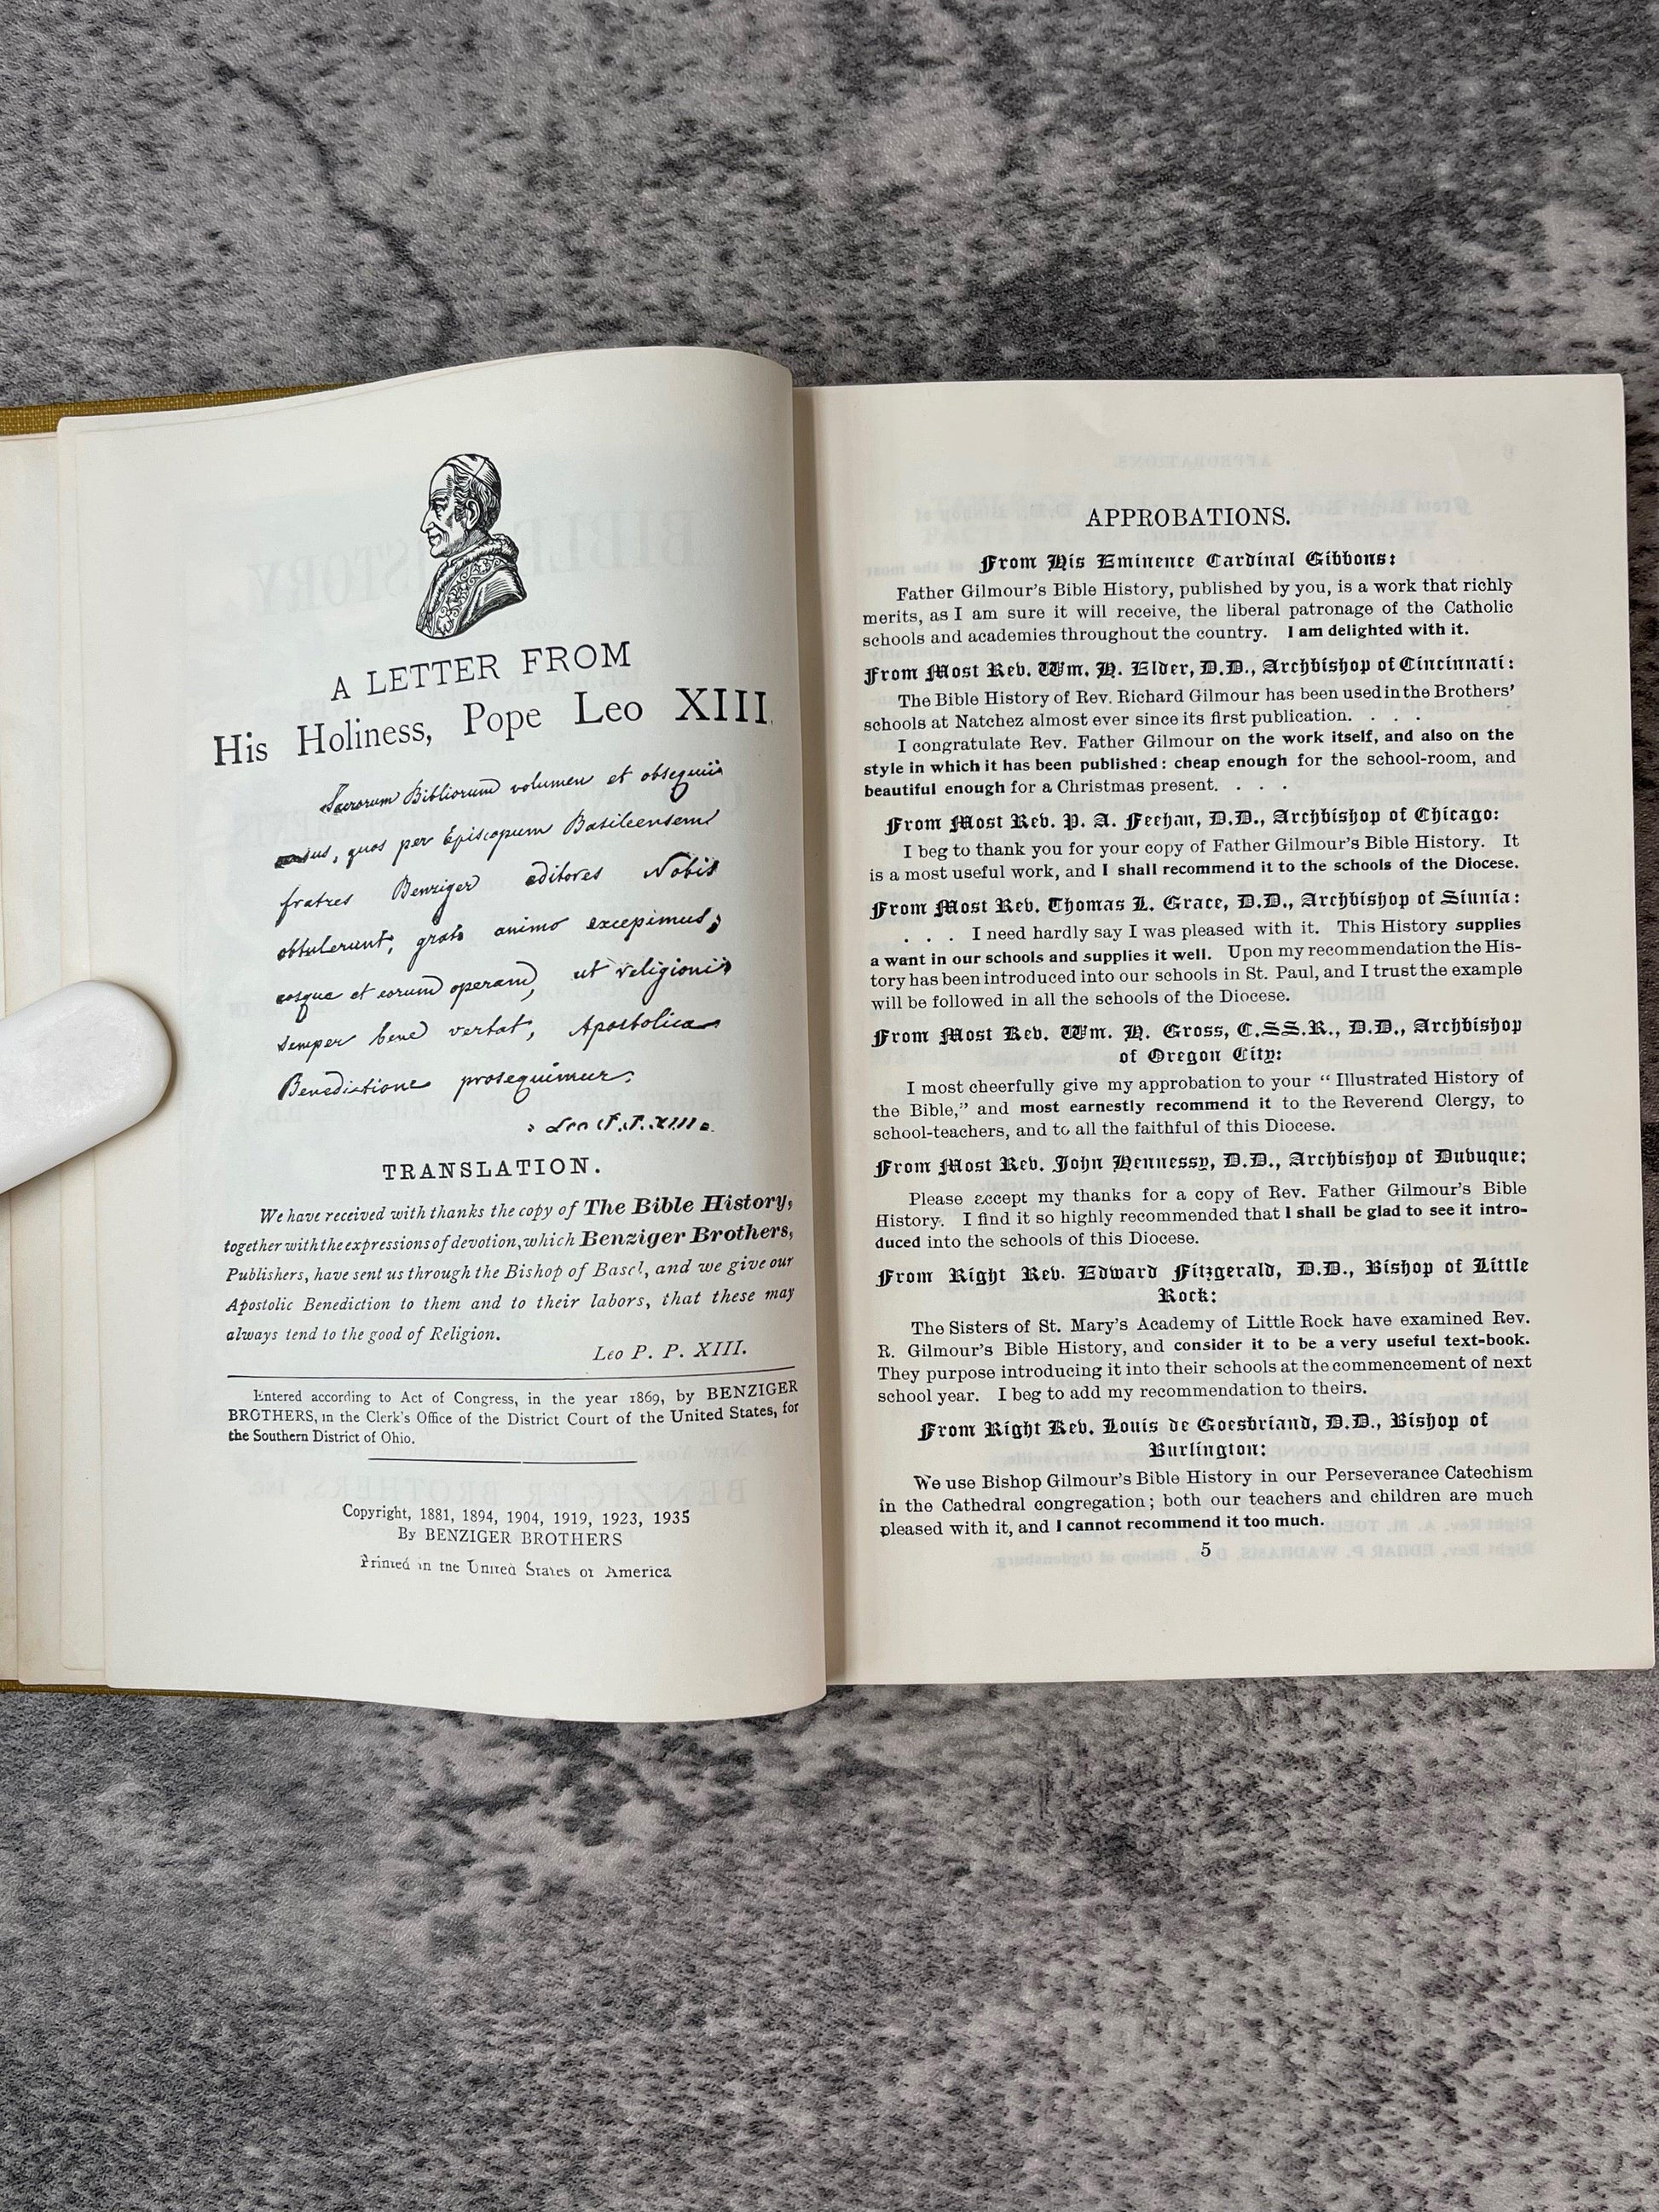 A LETTER FROM
His Holiness, Pope Leo XIII.
Sacrorum Bibliorum volumen et obsequii
sensus, quos per Episcopum Basileensem
fratres Benziger editores Nobis
obtulerunt, grato animo excepimus,
eosque et eorum operam, ut religioni
semper bene vertat, Apostolica
Benedictione prosequimur.
Leo P.P. XIII.
TRANSLATION.
We have received with thanks the copy of The Bible History,
together with the expressions of devotion, which Benziger Brothers,
Publishers, have sent us through the Bishop of Basel, and we give our
Apostolic Benediction to them and to their labors, that these may
always tend to the good of Religion.
Leo P. P. XIII.
Entered according to Act of Congress, in the year 1869, by BENZIGER
BROTHERS, in the Clerk's Office of the District Court of the United States, for
the Southern District of Ohio.
Copyright, 1881, 1894, 1904, 1919, 1923, 1935
By BENZIGER BROTHERS
Printed in the United States of America
APPROBATIONS.
From His Eminence Cardinal Gibbons:
Father Gilmour's Bible History, published by you, is a work that richly
merits, as I am sure it will receive, the liberal patronage of the Catholic
schools and academies throughout the country. I am delighted with it.
From Most Rev. Wm. H. Elder, D.D., Archbishop of Cincinnati:
The Bible History of Rev. Richard Gilmour has been used in the Brothers'
schools at Natchez almost ever since its first publication. . . .
I congratulate Rev. Father Gilmour on the work itself, and also on the
style in which it has been published: cheap enough for the school-room, and
beautiful enough for a Christmas present. . . .
From Most Rev. P. A. Feehan, D.D., Archbishop of Chicago:
I beg to thank you for your copy of Father Gilmour's Bible History. It
is a most useful work, and I shall recommend it to the schools of the Diocese.
From Most Rev. Thomas L. Grace, D.D., Archbishop of Siunia:
. . . I need hardly say I was pleased with it. This History supplies
a want in our schools and supplies it well. Upon my recommendation the His-
tory has been introduced into our schools in St. Paul, and I trust the example
will be followed in all the schools of the Diocese.
From Most Rev. Wm. H. Gross, C.SS.R., D.D., Archbishop
of Oregon City:
I most cheerfully give my approbation to your "Illustrated History of
the Bible," and most earnestly recommend it to the Reverend Clergy, to
school-teachers, and to all the faithful of this Diocese.
From Most Rev. John Hennessy, D.D., Archbishop of Dubuque:
Please accept my thanks for a copy of Rev. Father Gilmour's Bible
History. I find it so highly recommended that I shall be glad to see it intro-
duced into the schools of this Diocese.
From Right Rev. Edward Fitzgerald, D.D., Bishop of Little
Rock:
The Sisters of St. Mary's Academy of Little Rock have examined Rev.
R. Gilmour's Bible History, and consider it to be a very useful text-book.
They purpose introducing it into their schools at the commencement of next
school year. I beg to add my recommendation to theirs.
From Right Rev. Louis de Goesbriand, D.D., Bishop of
Burlington:
We use Bishop Gilmour's Bible History in our Perseverance Catechism
in the Cathedral congregation; both our teachers and children are much
pleased with it, and I cannot recommend it too much.
5